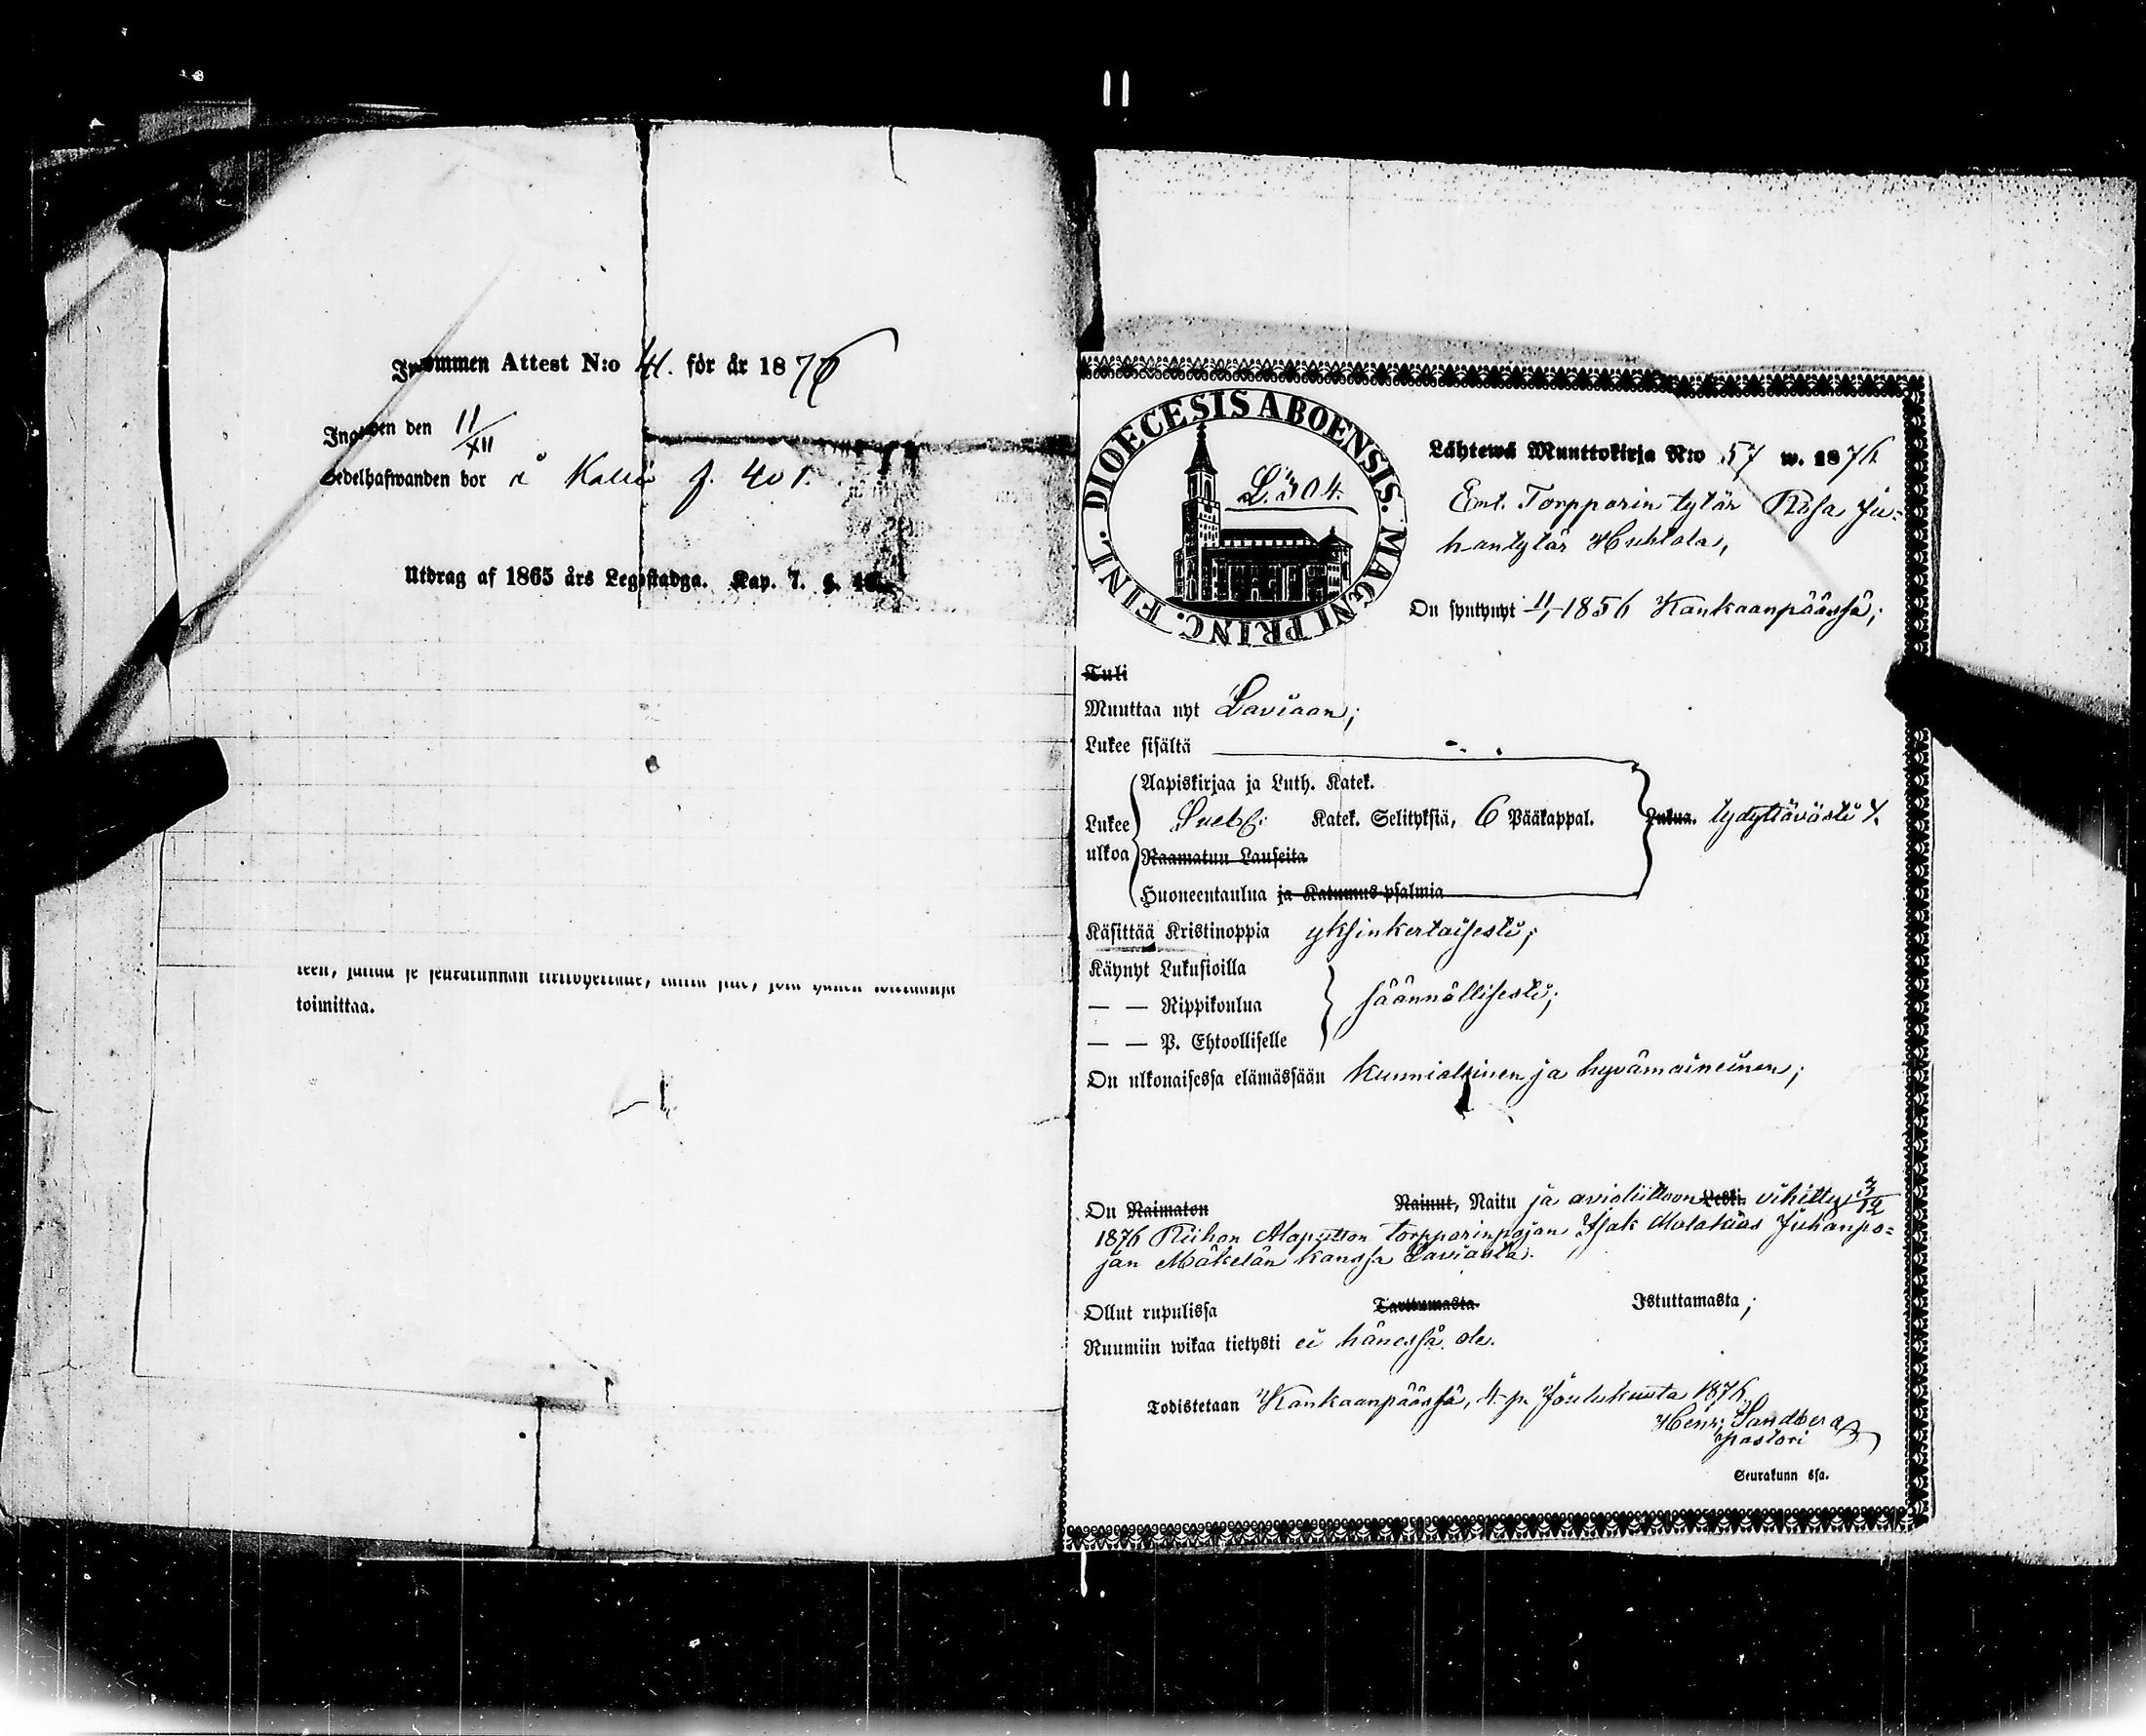 11
Inkommen Attest N:o 41. för år 1876
Ingifven den 11/XII
Sedelhafwanden bor å f. 401.
Utdrag af 1865 års Legostadga. Kap. 7. §.
toimittaa.
DIOECESIS ABOENSIS. MAGNI PRINC. FINL.
L. 304.
Lähtewä Muuttokirja N:o 57 w. 1876
Ent. Torpparin tytär Rosa Ju-
hantytär Huhtala,
On syntynyt 1856 Kankaanpäässä;
Tuli
Muuttaa nyt Laviaan;
Lukee sisältä
Aapiskirjaa ja Luth. Katek.
Lukee Katek. Selityksiä, 6 Pääkappal. Lukua. tydyttävästi
ulkoa Raamatun Lauseita
Huoneentaulua ja Katumus-psalmia
Käsittää Kristinoppia yksinkertaisesti;
Käynyt Lukusioilla
— — Rippikoulua säännöllisesti;
— — P. Ehtoolliselle
On ulkonaisessa elämässään kunniallinen ja hyvämaineinen;
On Naimaton Nainut, Naitu ja avioliittoon Leski. vihitty 3/12
1876 Riihon torpparinpojan Isak Malakias Juhanpo-
jan Mäkelän kanssa Laviasta.
Ollut rupulissa Tarttumasta. Istuttamasta;
Ruumiin wikaa tietysti ei hänessä ole.
Todistetaan Kankaanpäässä, 4 p. Joulukuuta 1876.
Henr. Sandberg
pastori
Seurakunn ssa.